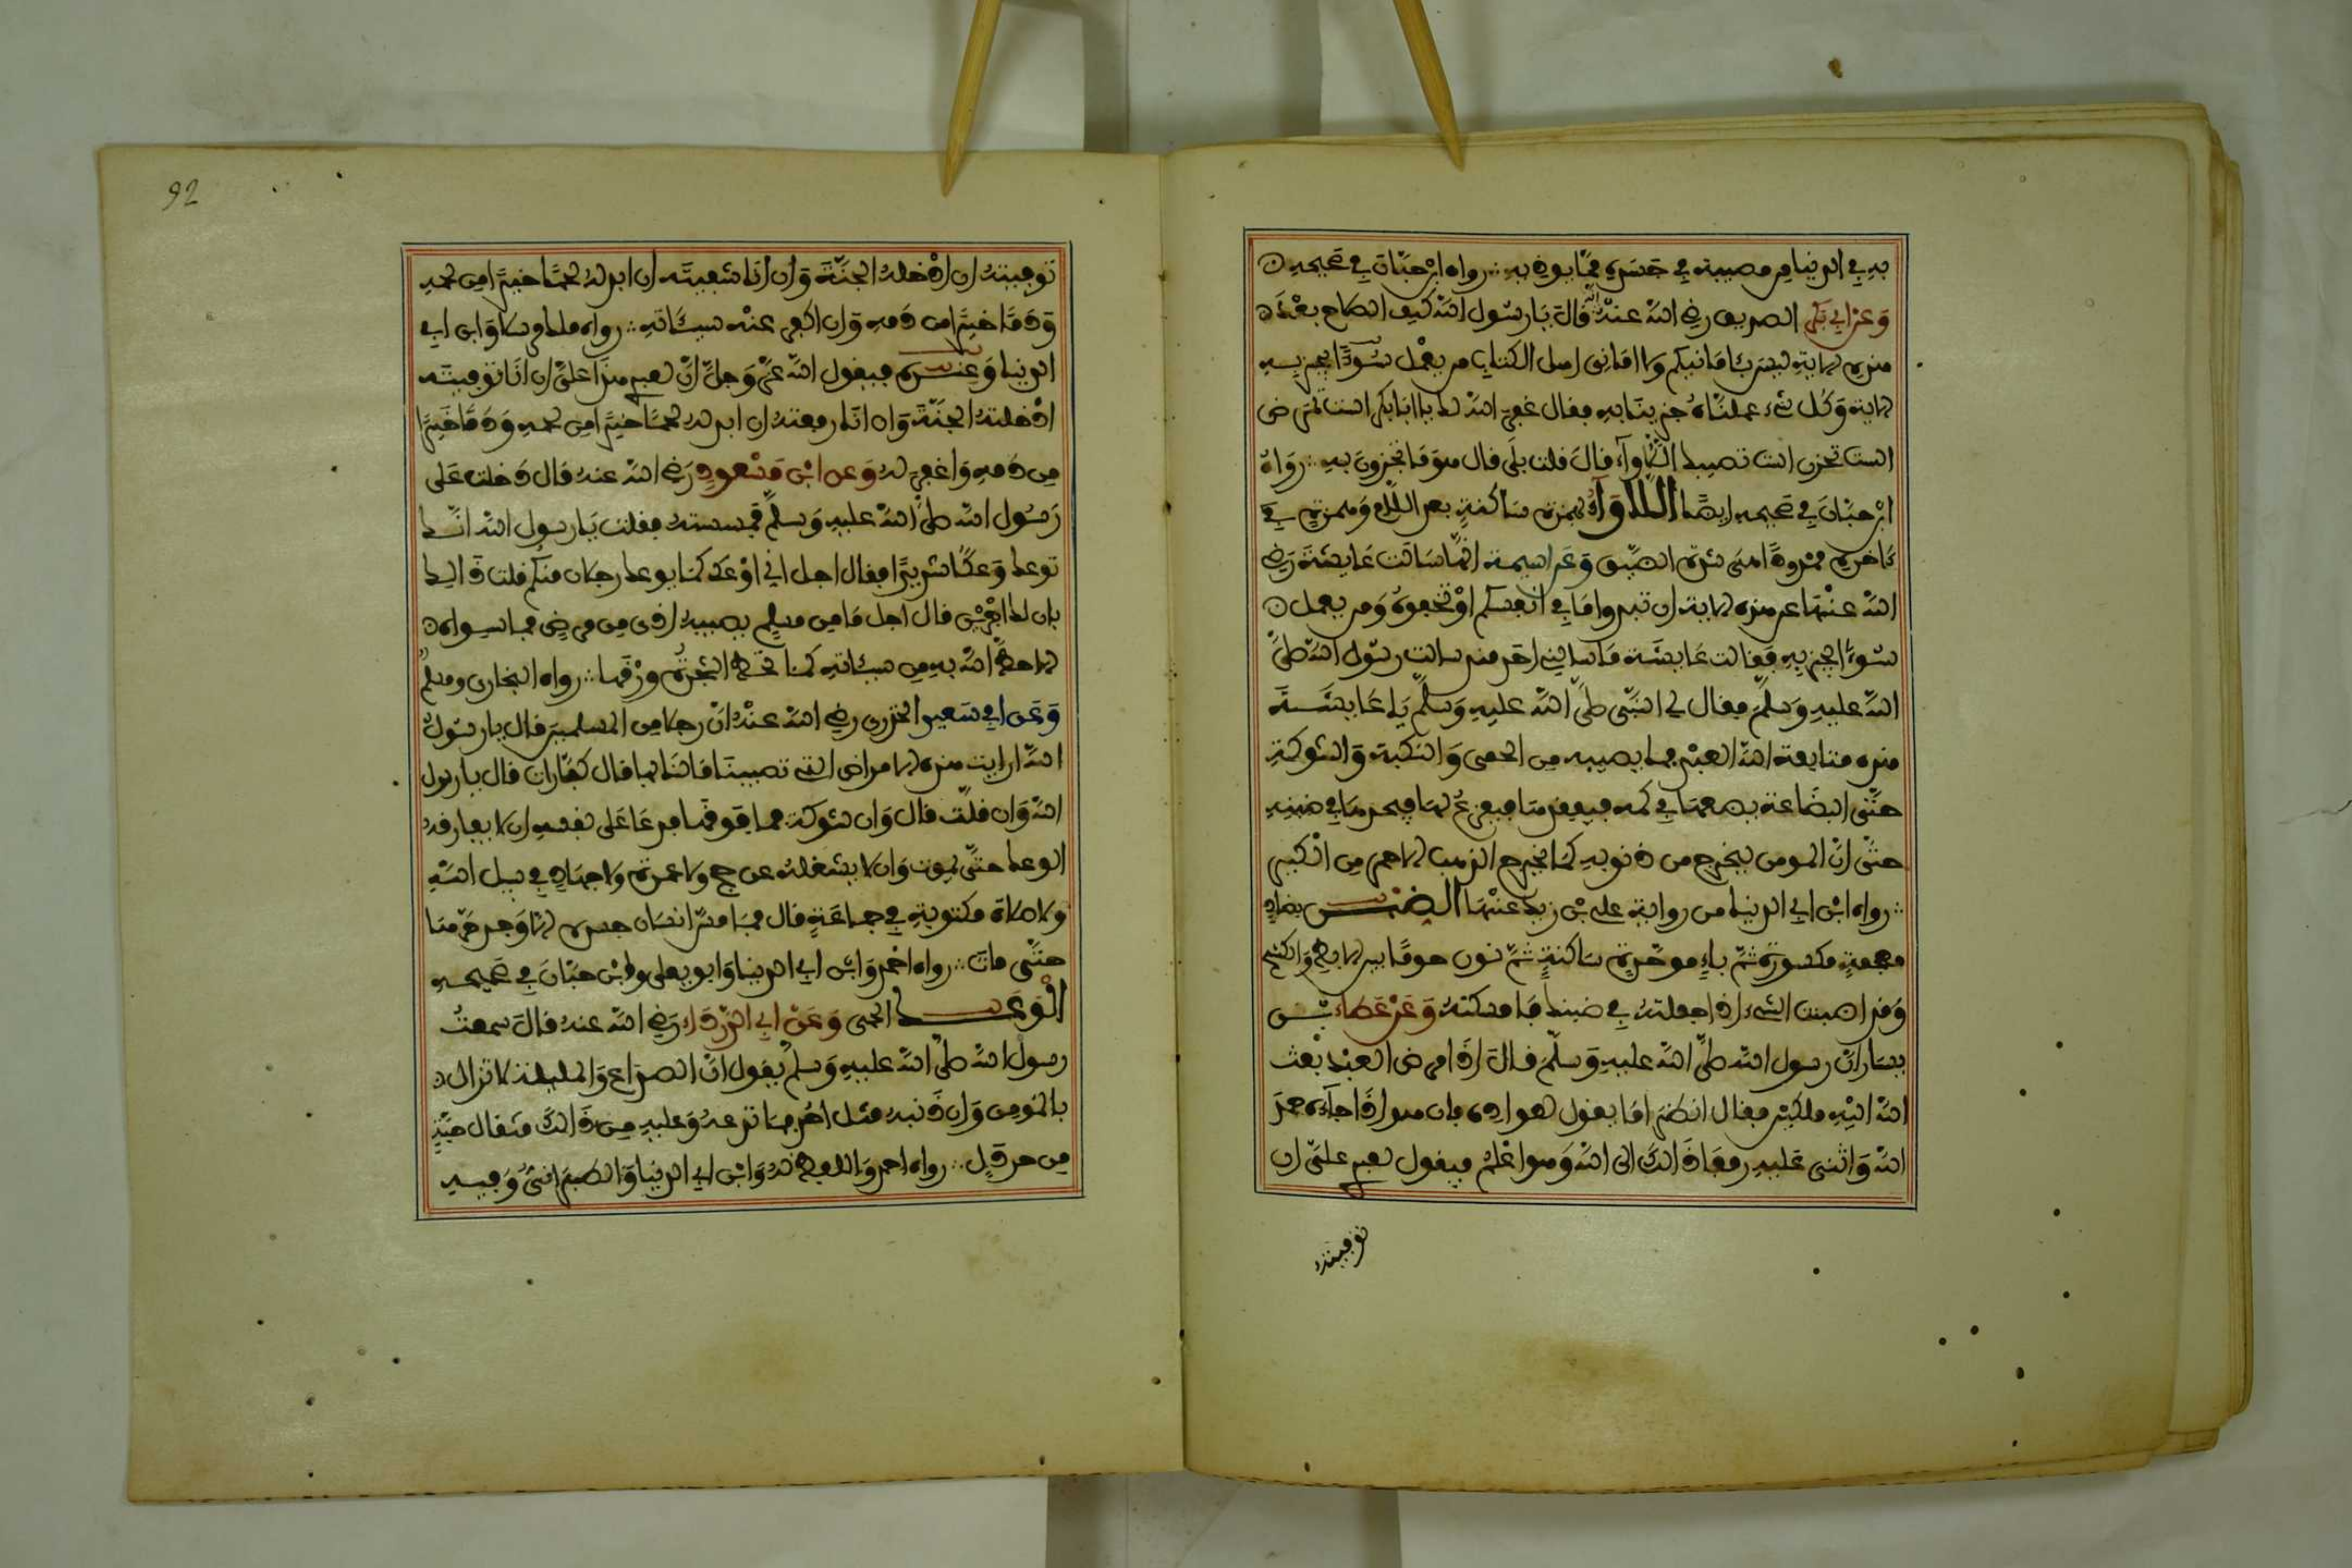 به في الدنيا من مصيبة في جسده مما يوذيه ∴ رواه ابن حبان في صحيحه ه
وعن ابي بكر الصديق رضي الله عنه انه قال يا رسول الله كيف الصلاح بعد ه
هذه الاية ليس بامانيكم ولا اماني اهل الكتاب من يعمل سوءا يجز به
الاية وكل شيء عملناه جزينا به فقال غفر الله لك يا ابا بكر الست تمرض
الست تحزن الست تصيبك اللاواء قال قلت بلى قال هو ما تجزون به ∴ رواه
ابن حبان في صحيحه ايضا اللاواء بهمزة ساكنة بعد اللام وهمزة في
ءاخره ممدودا هي شدة الضيق وعن اميمة انها سالت عايشة رضي
الله عنها عن هذه الاية ان تبدوا ما في انفسكم او تخفوه ومن يعمل ه
سوءا يجز به فقالت عايشة ما سالني احد منذ سالت رسول الله صلى
الله عليه وسلم فقال لي النبي صلى الله عليه وسلم يا عايشة
هذه متابعة الله العبد بما يصيبه من الحمى والنكبة والشوكة
حتى البضاعة يضعها في كمه فيفقدها فيفزع لها فيجدها في ضبنه
حتى ان المومن ليخرج من ذنوبه كما يخرج الذهب الاحمر من الكير
∴ رواه ابن ابي الدنيا من رواية علي بن زيد عنها الضبن بضاد
معجمة مكسورة ثم باء موحدة ساكنة ثم نون هو ما بين الابط والكشح
وقد اضبنت الشيء اذا جعلته في ضبنك فامسكته وعن عطاء بن
يسار ان رسول الله صلى الله عليه وسلم قال اذا مرض العبد بعث
الله اليه ملكين فقال انظرا ما يقول لعواده فان هو اذا جاءوه حمد
الله واثنى عليه رفعا ذالك الى الله وهو اعلم فيقول لعبدي علي ان
توفيته
92
توفيته ان ادخله الجنة وان انا شفيته ان ابدله لحما خيرا من لحمه
ودما خيرا من دمه وان اكفر عنه سيئاته ∴ رواه ملك مرسلا وابن ابي
الدنيا وعنده فيقول الله عز وجل ان لعبدي هذا علي ان انا توفيته
ادخلته الجنة وان انا رفعته ان ابدله لحما خيرا من لحمه ودما خيرا
من دمه واغفر له وعن ابن مسعود رضي الله عنه قال دخلت على
رسول الله صلى الله عليه وسلم فمسسته فقلت يا رسول الله انك
توعك وعكا شديدا فقال اجل اني اوعك كما يوعك رجلان منكم قلت ذالك
بان لك اجرين قال اجل ما من مسلم يصيبه اذى من مرض فما سواه ه
الا حط الله به من سيئاته كما تحط الشجرة ورقها ∴ رواه البخاري ومسلم
وعن ابي سعيد الخدري رضي الله عنه ان رجلا من المسلمين قال يا رسول
الله ارايت هذه الامراض التي تصيبنا ما لنا بها قال كفارات قال يا رسول
الله وان قلت قال وان شوكة فما فوقها فدعا على نفسه ان لا يفارقه
الوعك حتى يموت وان لا يشغله عن حج ولا عمرة ولا جهاد في سبيل الله
ولا صلاة مكتوبة في جماعة قال فما مس انسان جسده الا وجد حرها
حتى مات ∴ رواه احمد وابن ابي الدنيا وابو يعلى وابن حبان في صحيحه
الوعك الحمى وعن ابي الدرداء رضي الله عنه قال سمعت
رسول الله صلى الله عليه وسلم يقول ان الصداع والمليلة لا تزال ه
بالمومن وان ذنبه مثل احد فما تدعه وعليه من ذالك مثقال حبة
من خردل ∴ رواه احمد واللفظ له وابن ابي الدنيا والطبراني وفيه